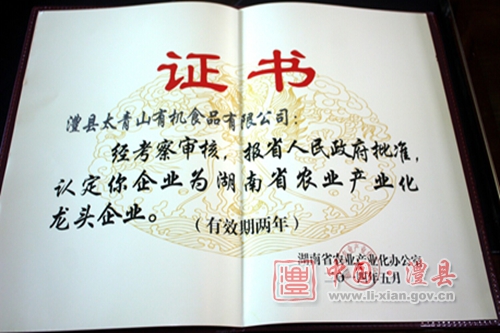 证书
澧县太青山有机食品有限公司：
经考察审核，报省人民政府批准，
认定你企业为湖南省农业产业化
龙头企业。
（有效期两年）
湖南省农业产业化办公室
一四年五月
中国·澧县
www.li-xian.gov.cn